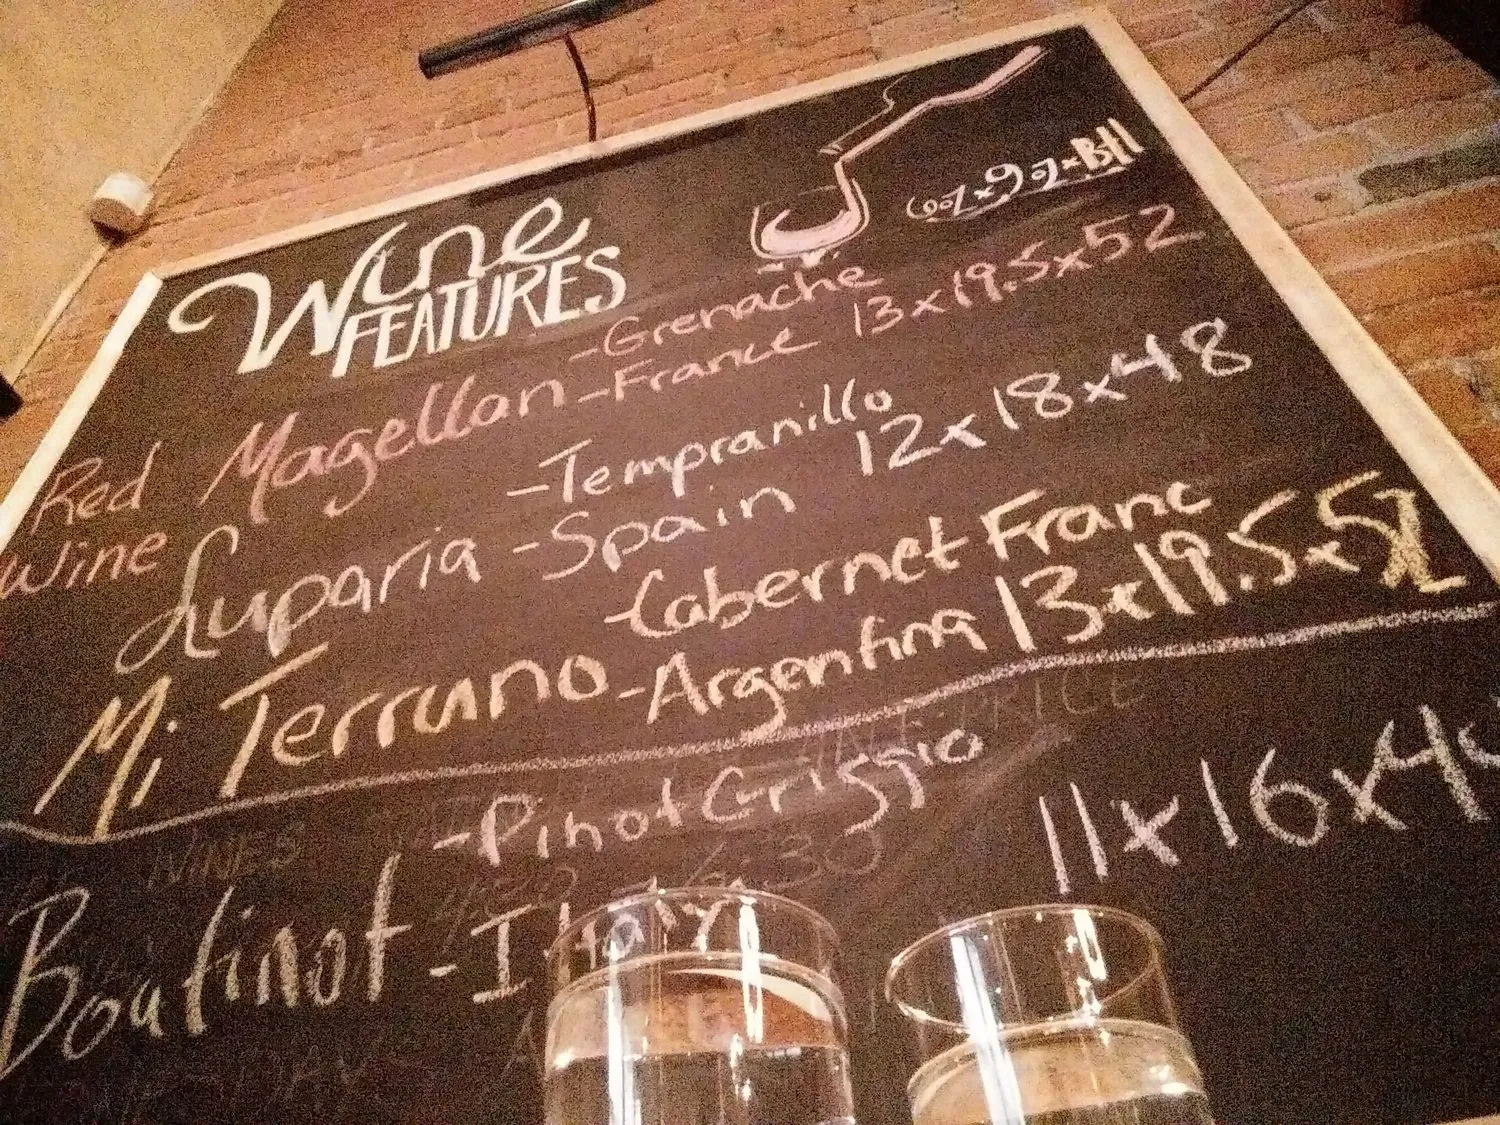 Wine
FEATURES
6oz x 9oz x Btl
Red Wine
Magellan
-Grenache
-France 13x19.5x52
Luparia
-Tempranillo
-Spain 12x18x48
Mi Terruno
-Cabernet Franc
-Argentina 13x19.5x52
Boutinot
-Pinot Griggio
-Italy
11x16x4